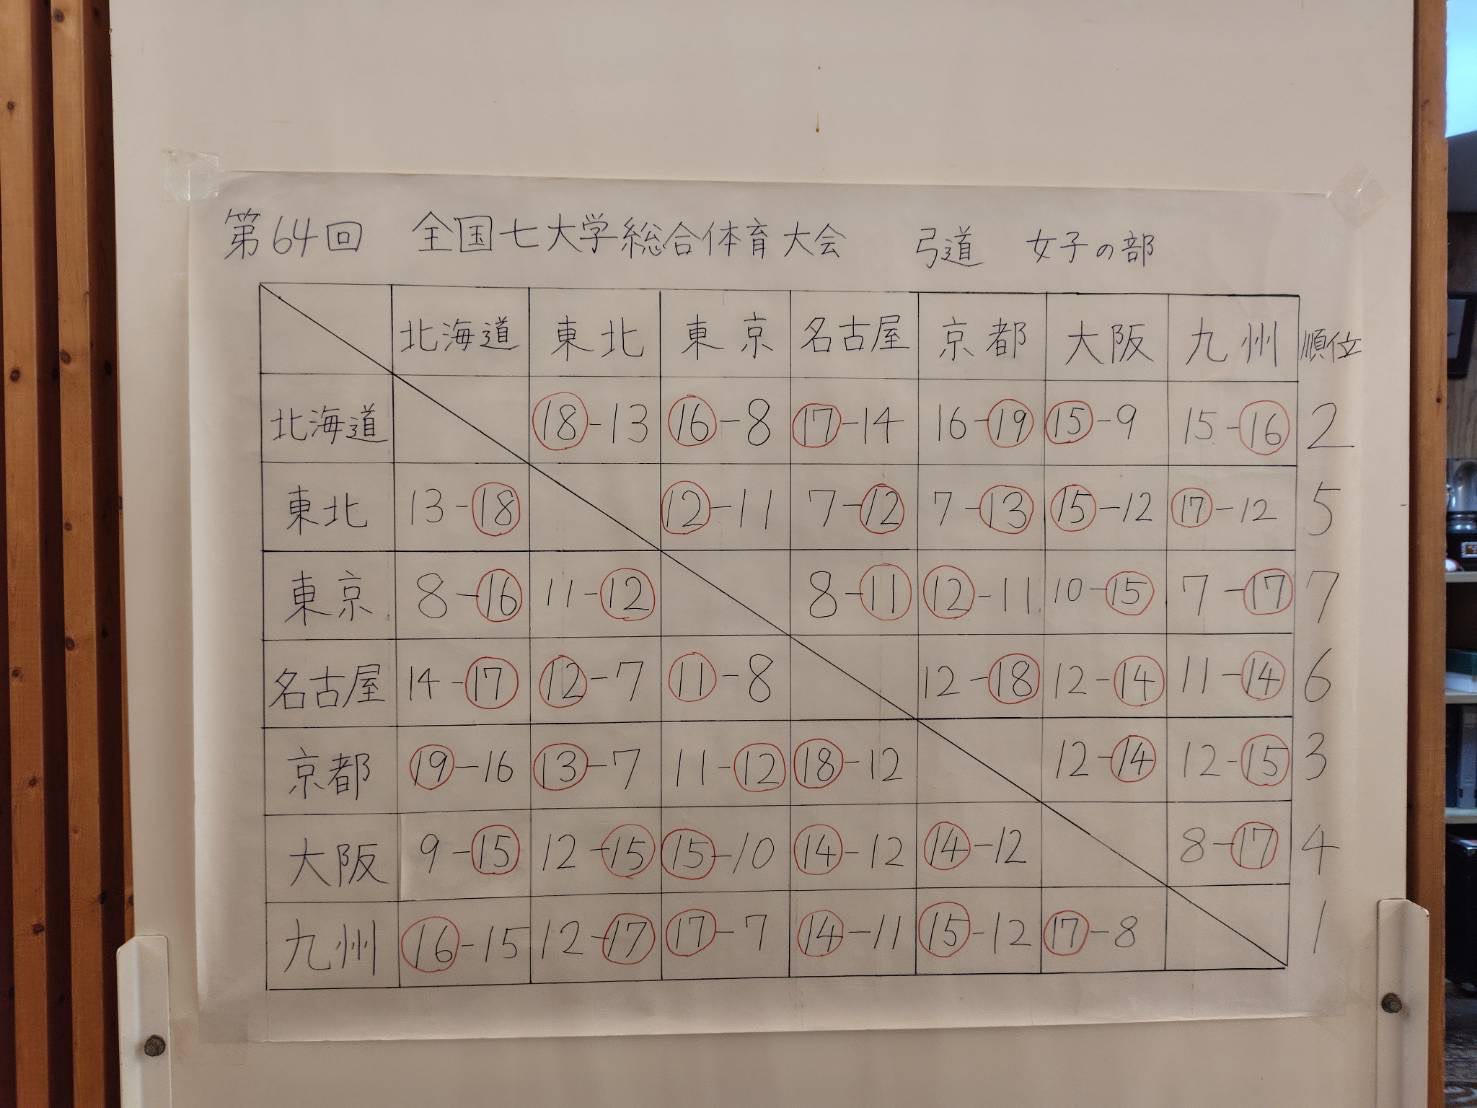 第64回 全国七大学総合体育大会 弓道 女子の部
北海道 東北 東京 名古屋 京都 大阪 九州 順位
北海道 18-13 16-8 17-14 16-19 15-9 15-16 2
東北 13-18 12-11 7-12 7-13 15-12 17-12 5
東京 8-16 11-12 8-11 12-11 10-15 7-17 7
名古屋 14-17 12-7 11-8 12-18 12-14 11-14 6
京都 19-16 13-7 11-12 18-12 12-14 12-15 3
大阪 9-15 12-15 15-10 14-12 14-12 8-17 4
九州 16-15 12-17 17-7 14-11 15-12 17-8 1